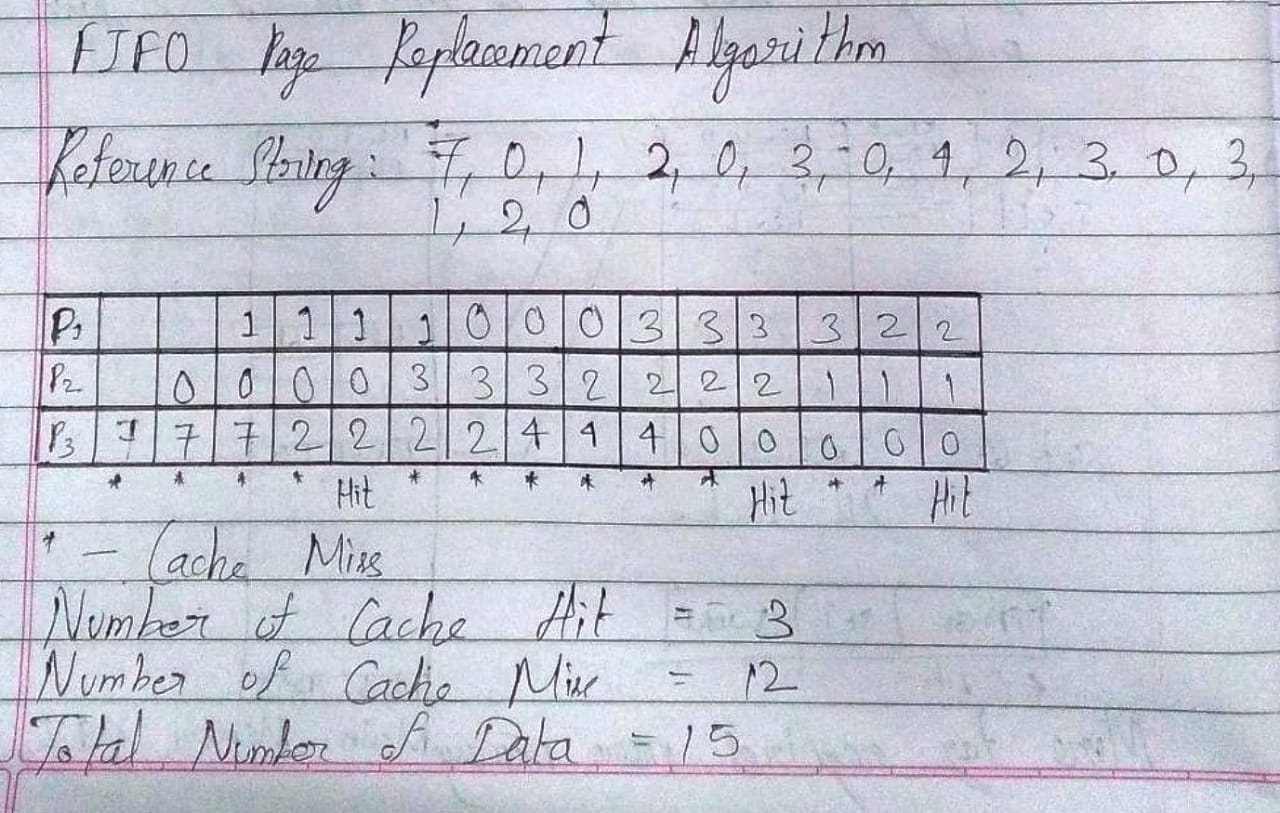 FIFO Page Replacement Algorithm
Reference String: 7, 0, 1, 2, 0, 3, 0, 4, 2, 3, 0, 3,
1, 2, 0
P1 1 1 1 1 0 0 0 3 3 3 3 2 2
P2 0 0 0 0 3 3 3 2 2 2 2 1 1 1
P3 7 7 7 2 2 2 2 4 4 4 0 0 0 0 0
* * * * Hit * * * * * * Hit * * Hit
* - Cache Miss
Number of Cache Hit = 3
Number of Cache Miss = 12
Total Number of Data = 15